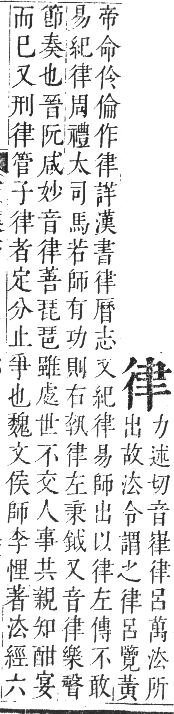 律
力述切音嵂律呂萬法所
出故法令謂之律呂覽黃
帝命伶倫作律詳漢書律曆志又紀律易師出以律左傳不敢
易紀律周禮太司馬若師有功則右執律左秉鉞又音律樂聲
節奏也晉阮咸妙音律善琵琶雖處世不交人事共親知酣宴
而巳又刑律管子律者定分止爭也魏文侯師李悝著法經六